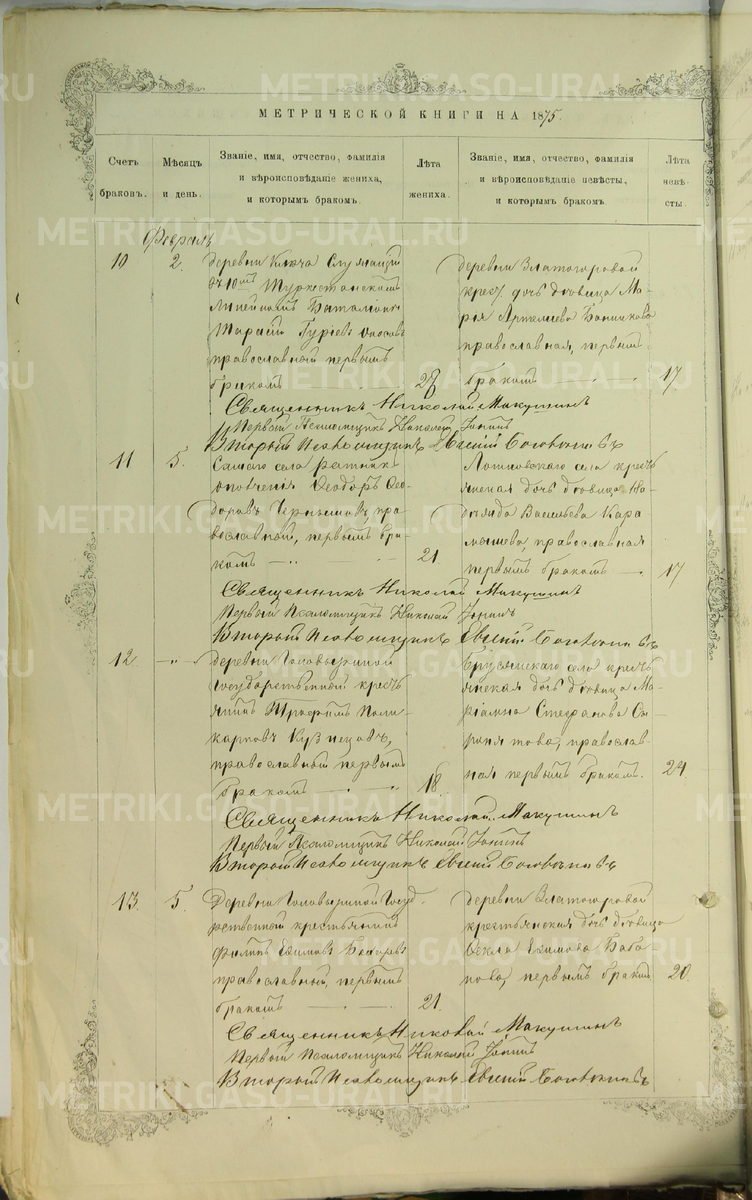 МЕТРИЧЕСКОЙ КНИГИ НА 1875.
Счетъ браковъ.
Мѣсяцъ и день.
Званіе, имя, отчество, фамилія
и вѣроисповѣданіе жениха,
и которымъ бракомъ.
Лѣта жениха.
Званіе, имя, отчество, фамилія
и вѣроисповѣданіе невѣсты,
и которымъ бракомъ
Лѣта невѣ-
сты.
Февраль
10
2.
деревни Ключа Служащій
въ 10мъ Туркестанскомъ
Линейномъ Баталіонѣ
Тарасій Гуріевъ
православный первымъ
бракомъ
28
деревни Златогоровой
крест. дочь дѣвица Ма-
рья Артемьева Банникова
православная, первымъ
бракомъ
17.
Священникъ Николай Макушинъ
Первый Псаломщикъ Николай
Второй Псаломщикъ Евгеній
11
5.
Самаго села ратникъ
ополченія Ѳеодоръ Ѳео-
доровъ пра-
вославной, первымъ бра-
комъ
21
села кресть-
янская дочь дѣвица На-
дежда Васильева Кара-
мышева, православная
первымъ бракомъ
17
Священникъ Николай Макушинъ
Первый Псаломщикъ Николай
Второй Псаломщикъ Евгеній
12
деревни Головыриной
Государственной кресть-
янинъ Трофимъ Поли-
карповъ Кузнецовъ,
православный первымъ
бракомъ
18.
Брусянскаго села кресть-
янская дочь дѣвица Ма-
ріамна Стефанова
православ-
ная первымъ бракомъ.
24.
Священникъ Николай Макушинъ
Первый Псаломщикъ Николай
Второй Псаломщикъ Евгеній
13
5.
Деревни Головыриной Госуд-
рственной крестьянинъ
Филипъ Екимовъ
православный, первымъ
бракомъ
21.
деревни Златогоровой
крестьянская дочь дѣвица
Ѳекла Екимова Баба-
нова, первымъ бракомъ
20.
Священникъ Николай Макушинъ
Первый Псаломщикъ Николай
Второй Псаломщикъ Евгеній
METRIKI.GASO-URAL.RU